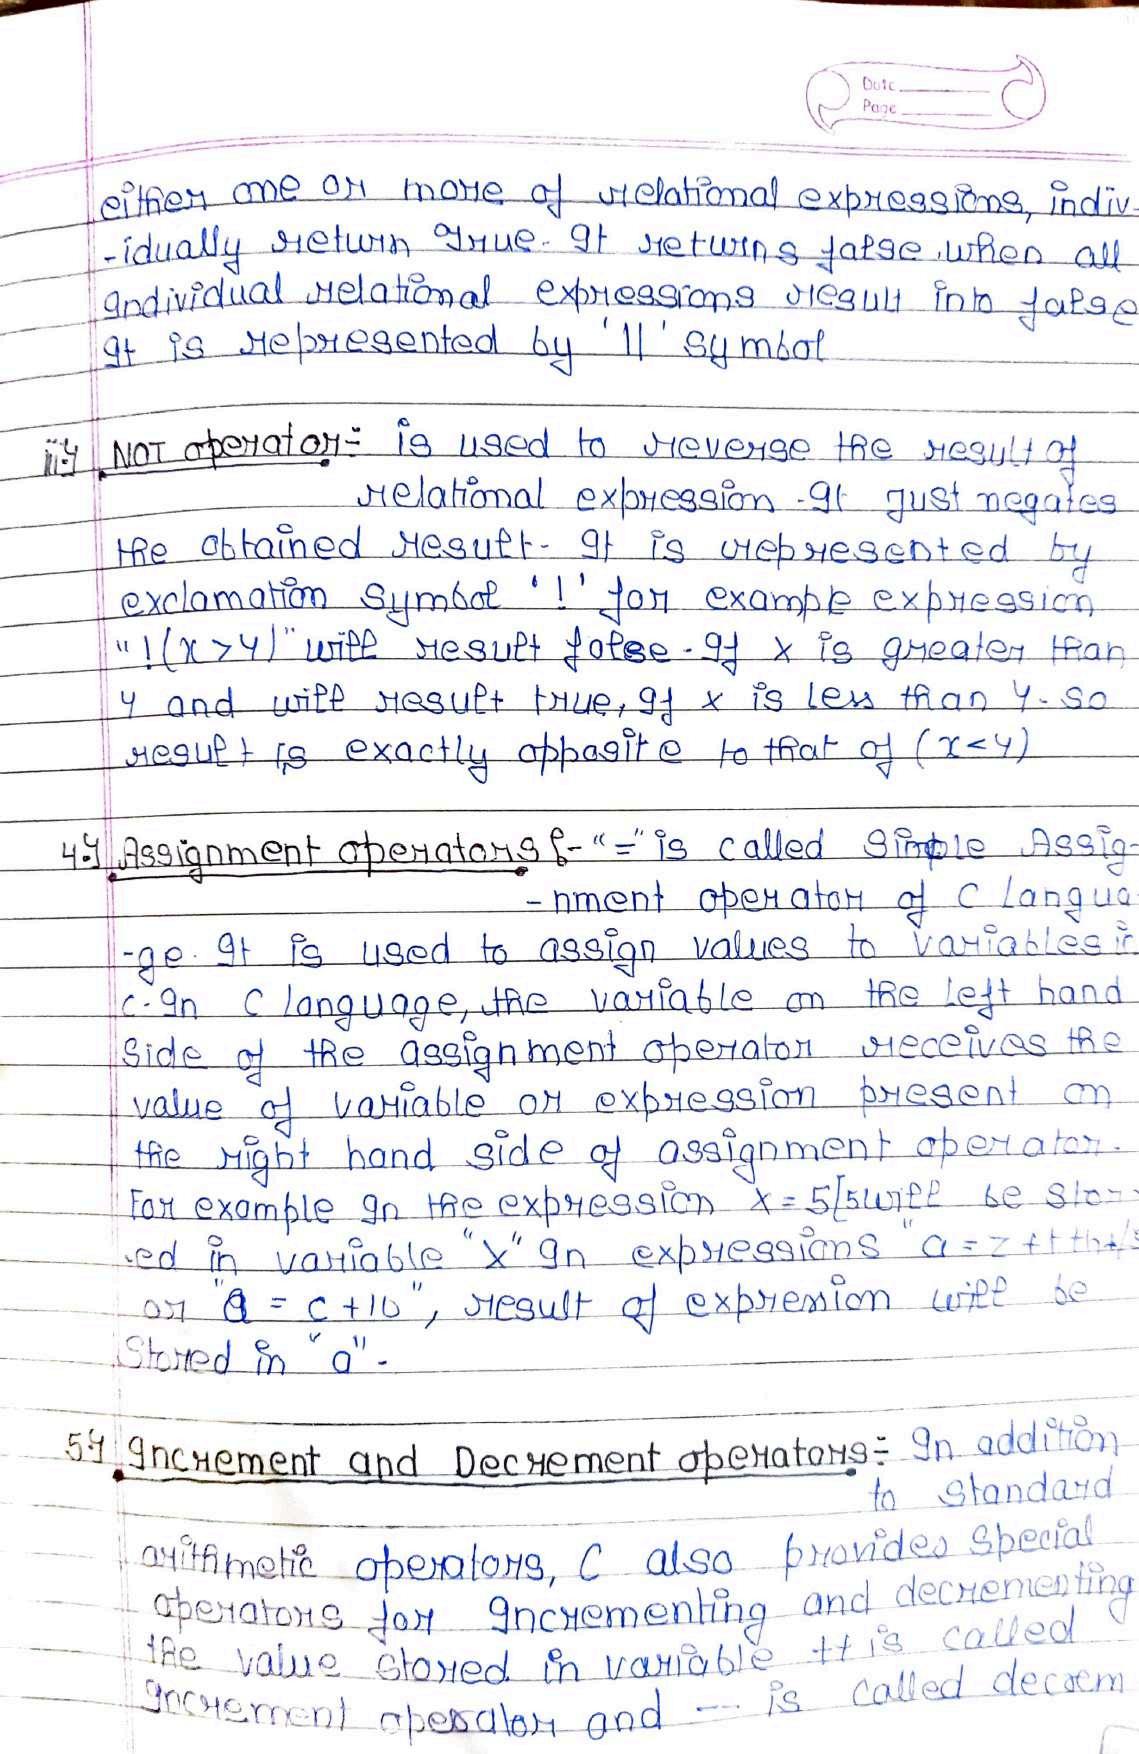 Date
Page
either one or more of relational expressions, indiv-
-idually return True. It returns false when all
Individual relational expressions result into false
It is represented by '||' symbol
iii) NOT operator:- is used to reverse the result of
relational expression. It just negates
the obtained result. It is represented by
exclamation symbol '!' for example expression
"!(x>y)" will result false. If x is greater than
y and will result true, If x is less than y. so
result is exactly opposite to that of (x<y)
4.) Assignment operators :- "=" is called Simple Assig-
-nment operator of C langua
-ge. It is used to assign values to variables in
C. In C language, the variable on the left hand
Side of the assignment operator receives the
value of variable or expression present on
the right hand side of assignment operator.
For example In the expression x = 5[5 will be stor-
-ed in variable "x" In expressions "a = z
or "a = c+10", result of expression will be
Stored in "a".
5.) Increment and Decrement operators:- In addition
to standard
arithmetic operators, C also provides special
operators for Incrementing and decrementing
the value stored in variable ++ is called
Increment operator and -- is called decrem